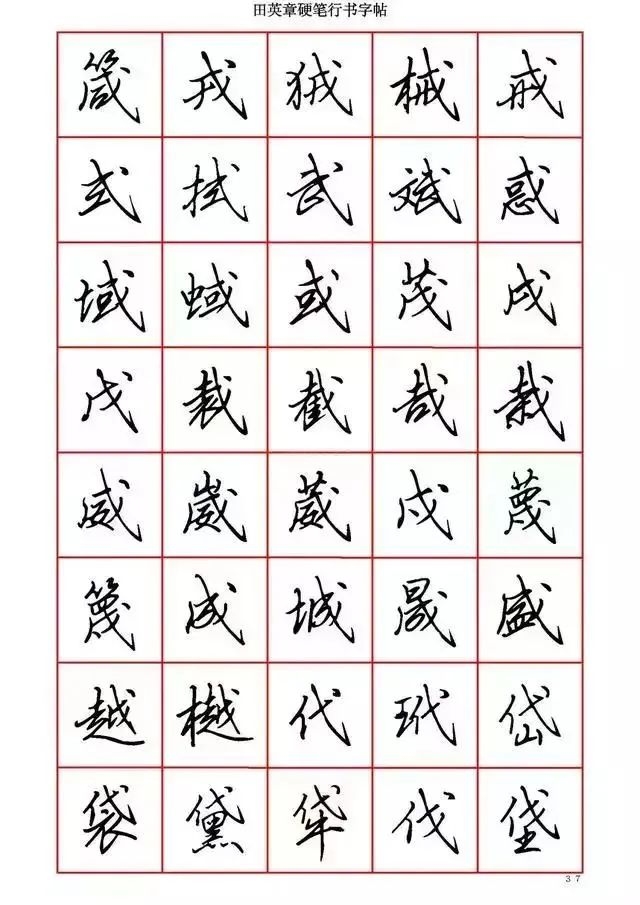 田英章硬笔行书字帖
箴戎狨械戒
式拭武斌惑
域蜮或茂戌
戊裁截哉栽
威崴葳戍蔑
篾成城晟盛
越樾代玳岱
袋黛牮伐垡
37